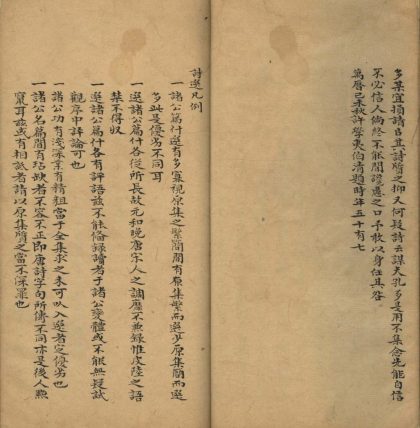 多某宜損諸
其詩質之抑又何疑詩云謀夫孔多是用不集念先能自信
不必信人倘終不能聞讒慝之口予敢以身任其咎
萬曆己未秋許學夷伯清題時年五十有七
詩選凡例
一諸公篇什選有多寡視原集之繁簡間有原集繁而選少原集簡而選
多此是優劣不同耳
一選諸公篇什各從所長故元和晚唐宋人之調靡不兼錄惟皮陸之語
禁不得收
一選諸公篇什各有評語茲不能備錄讀者于諸公變體或不能無疑試
觀序中評論可也
一諸公功有淺深業有精粗當于全集求之未可以入選者定優劣也
一諸公名篇間有玷缺者不容不正即唐詩字句所傳不同亦是後人點
竄耳茲或有相詆者請以原集質之當不深罪也